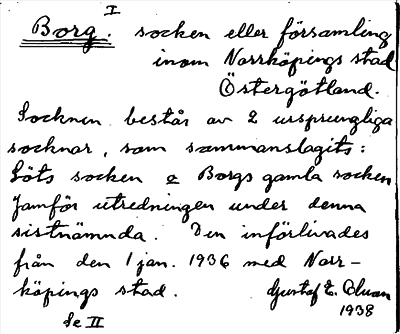 I
Borg. socken eller församling
inom Norrköpings stad
Östergötland.
Socknen består av 2 ursprungliga
socknar, som sammanslagits:
Löts socken o Borgs gamla socken
Jämför utredningen under denna
sistnämnda. Den införlivades
från den 1 jan. 1936 med Norr-
köpings stad. Gustaf E.
1938
Se II